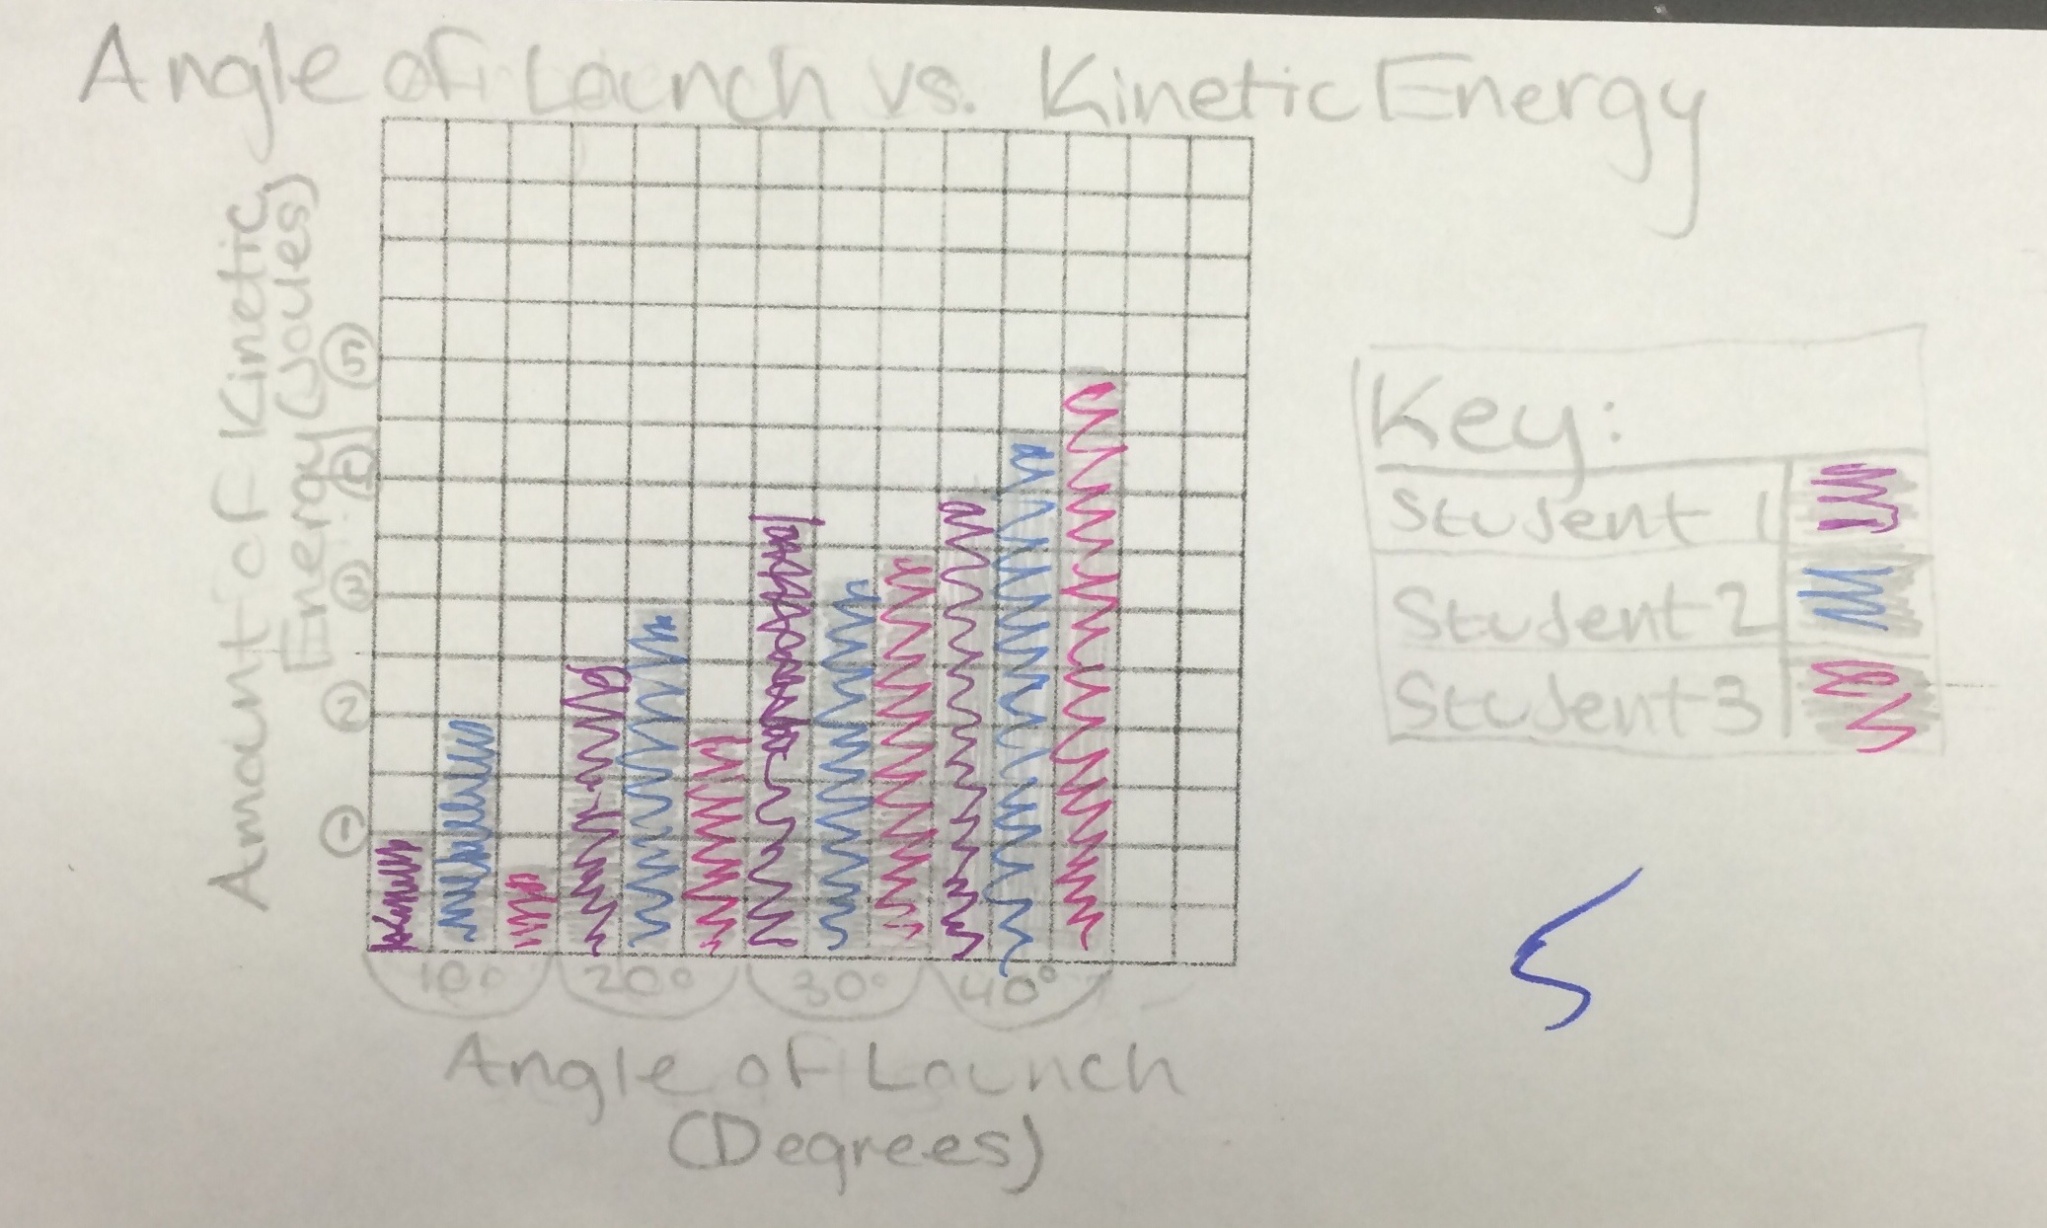 Angle of Launch vs. Kinetic Energy
Amount of Kinetic
Energy (Joules)
5
4
3
2
1
10° 20° 30° 40°
Angle of Launch
(Degrees)
Key:
Student 1
Student 2
Student 3
5